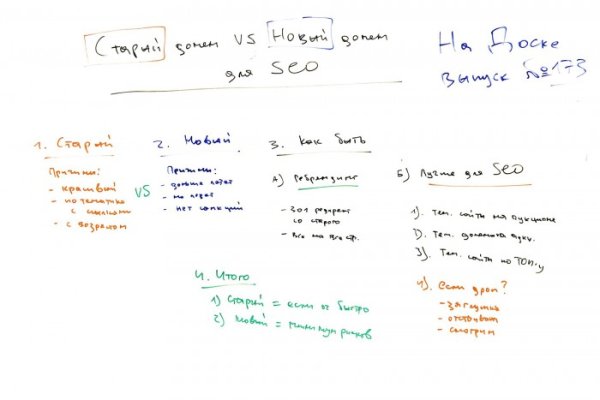 Старый домен VS Новый домен
для SEO
На Доске
выпуск №173
1. Старый
Причины:
- красивый
- по тематике
с ссылками
- с возрастом
VS
2. Новый
Причины:
- дольше
- нет санкций
3. Как быть
А) Ребрендинг
- 301 редирект
со старого
- Все на все стр.
Б) Лучше для SEO
1). Тем. сайты на аукционе
2). Тем. домены аукц.
3). Тем. сайты по ТОП-у
4). если дроп?
- загрузка
- отстаиваем
- смотрим
4. Итого
1) Старый = если ок быстро
2) Новый = минимум рисков